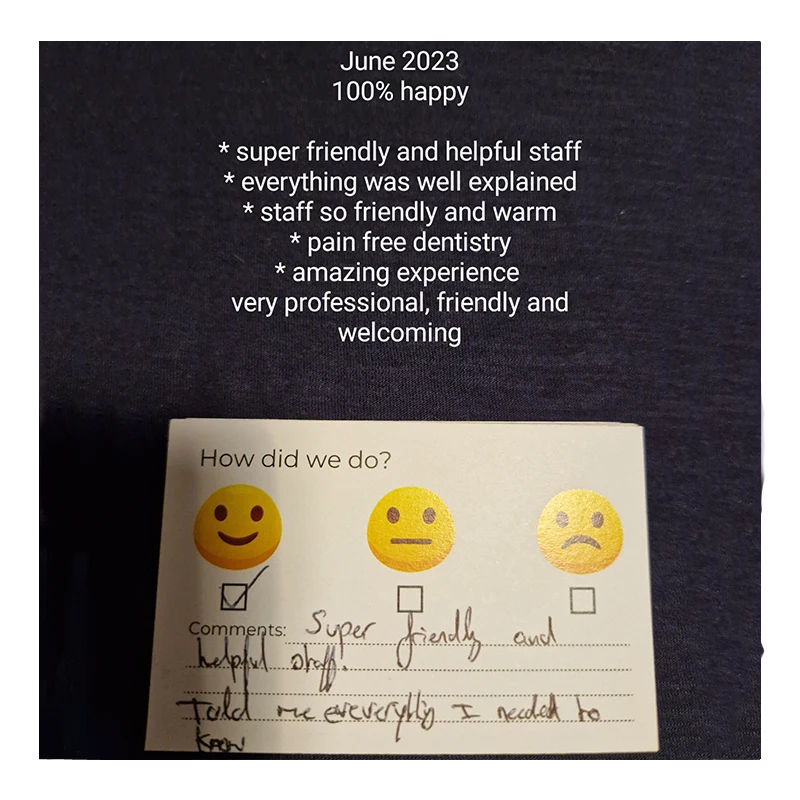 June 2023
100% happy
* super friendly and helpful staff
* everything was well explained
* staff so friendly and warm
* pain free dentistry
* amazing experience
very professional, friendly and
welcoming
How did we do?
Comments: Super friendly and
helpful staff.
Told me I needed to
know